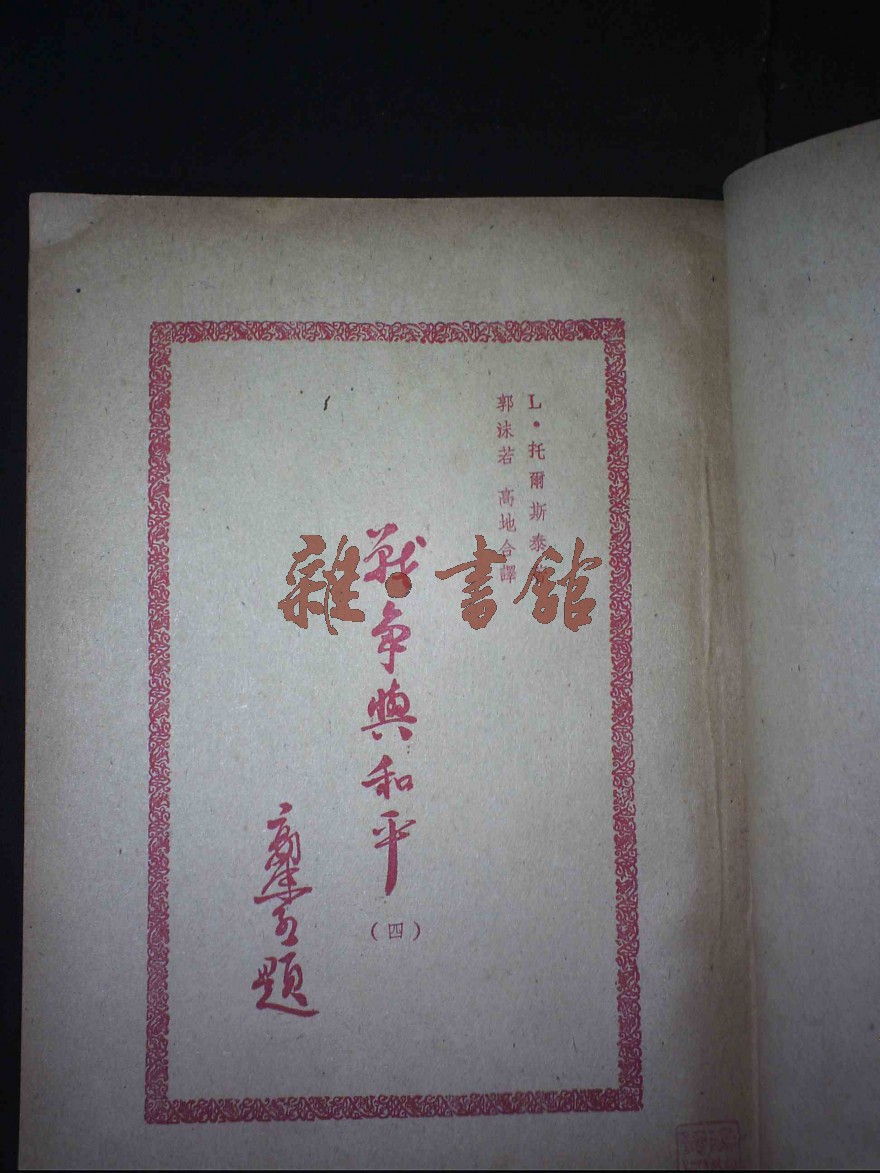 L·托爾斯泰
郭沫若 高地合譯
戰争與和平
(四)
郭沫若題
雜·書館